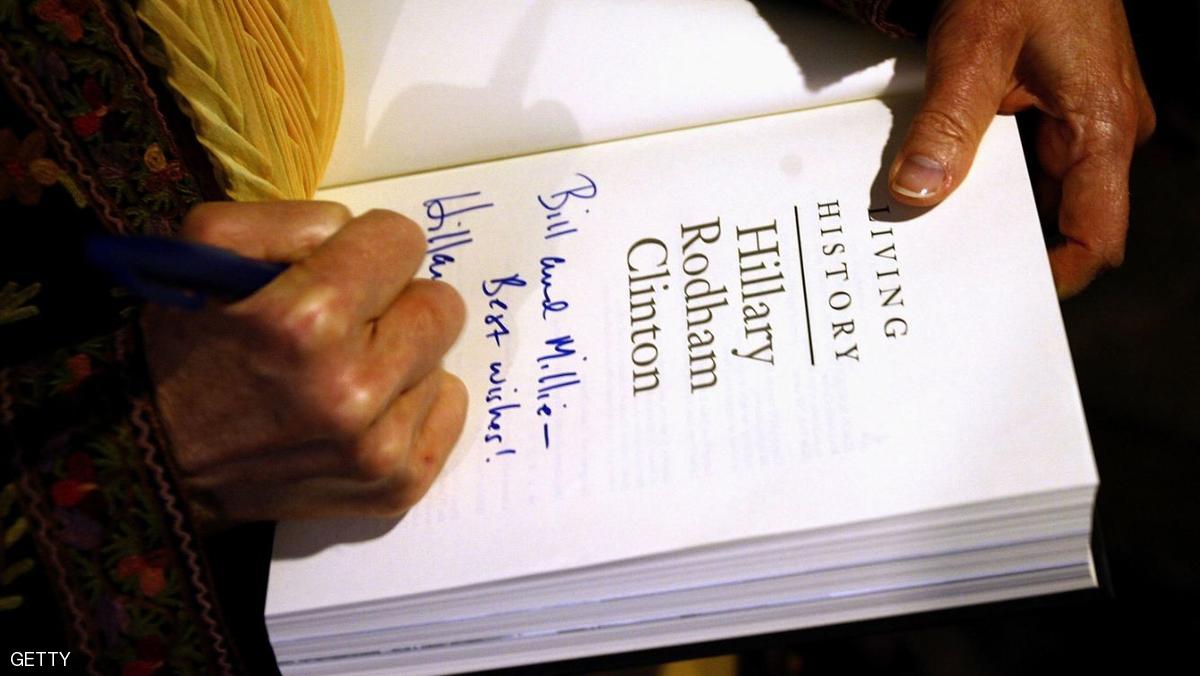 LIVING
HISTORY
Hillary
Rodham
Clinton
Bill and Millie—
Best wishes!
Hilla
GETTY